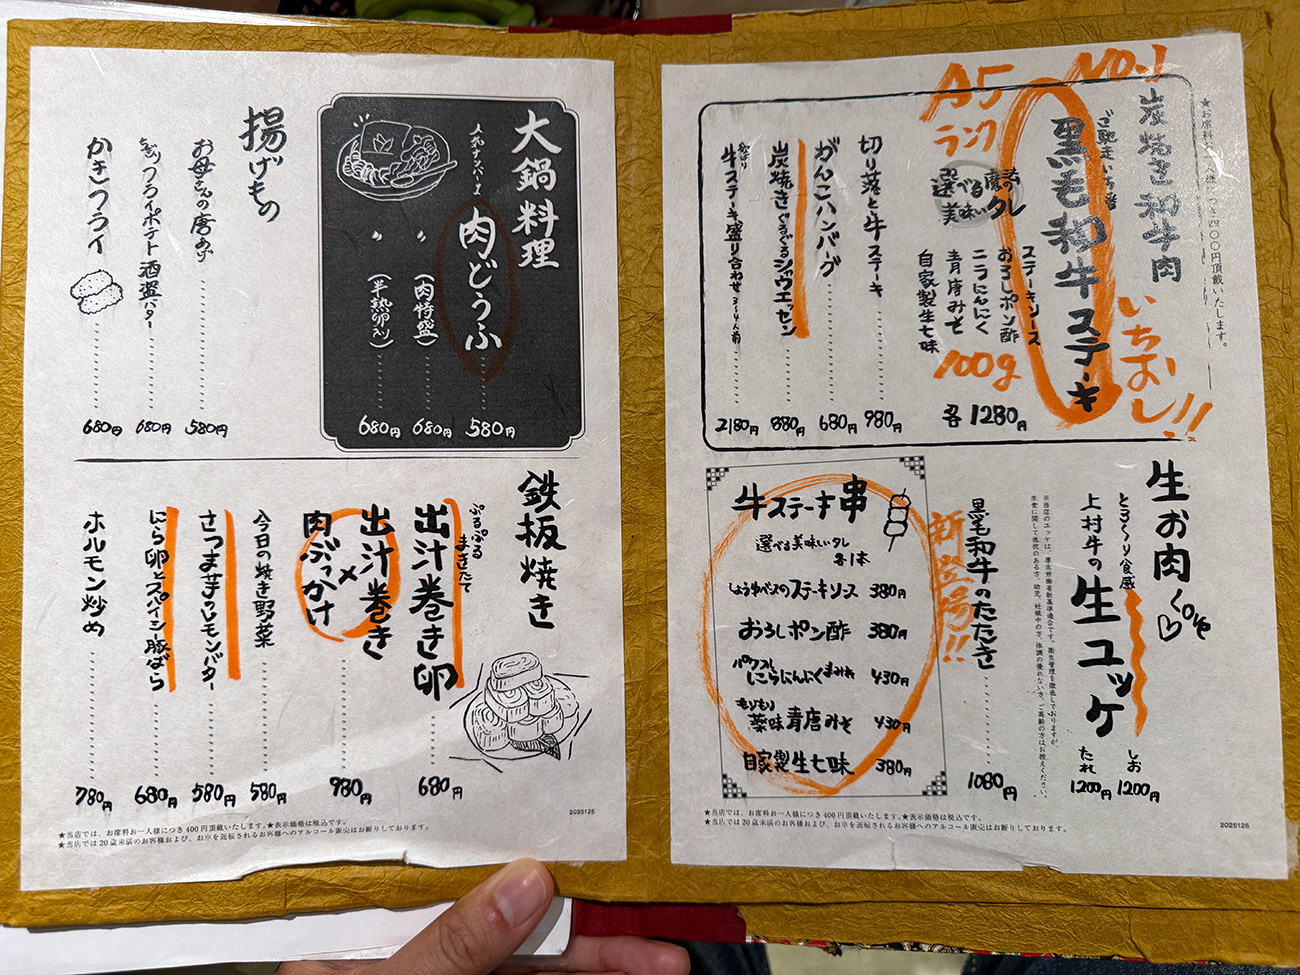 ★お席料お一人様につき400円頂戴いたします。
炭焼き和牛肉
No.1
A5
ランク
ご馳走いち番
黒毛和牛ステーキ
いちおし!!
選べる魔法の
美味いタレ
ステーキソース
おろしポン酢
ニラにんにく
青唐みそ
自家製生七味
100g
各1280円
切り落とし牛ステーキ
980円
がんこハンバーグ
680円
炭焼きぐるぐるシャウエッセン
880円
牛ステーキ盛り合わせ 3~4人前
2180円
生お肉 Love
とろ〜り食感
上村牛の生ユッケ
しお
1200円
たれ
1200円
※当店のユッケは、厚生労働省新基準適合です。衛生管理を徹底しておりますが、
生食に関して抵抗のある方、幼児、妊娠中の方、体調の優れない方、ご高齢の方はお控えください。
黒毛和牛のたたき
新登場!!
1080円
牛ステーキ串
選べる美味いタレ
各1本
しょうゆベースのステーキソース 380円
おろしポン酢 380円
パワフル
にらにんにくまみれ 430円
もりもり
薬味青唐みそ 430円
自家製生七味 380円
★当店では、お席料お一人様につき400円頂戴いたします。★表示価格は税込です。
★当店では20歳未満のお客様および、お車を運転されるお客様へのアルコール販売はお断りしております。
2025125
大鍋料理
人気ナンバー1
肉どうふ
580円
〃 (肉特盛)
680円
〃 (半熟卵入り)
680円
揚げもの
お母さんの唐あげ
580円
フライポテト酒盗バター
680円
かきフライ
680円
鉄板焼き
ぷるぷる
まきたて
出汁巻き卵
680円
出汁巻き
×
肉ぶっかけ
980円
今日の焼き野菜
580円
さつま芋のレモンバター
580円
にら卵とスパイシー豚ばら
680円
ホルモン炒め
780円
★当店では、お席料お一人様につき400円頂戴いたします。★表示価格は税込です。
★当店では20歳未満のお客様および、お車を運転されるお客様へのアルコール販売はお断りしております。
2025125